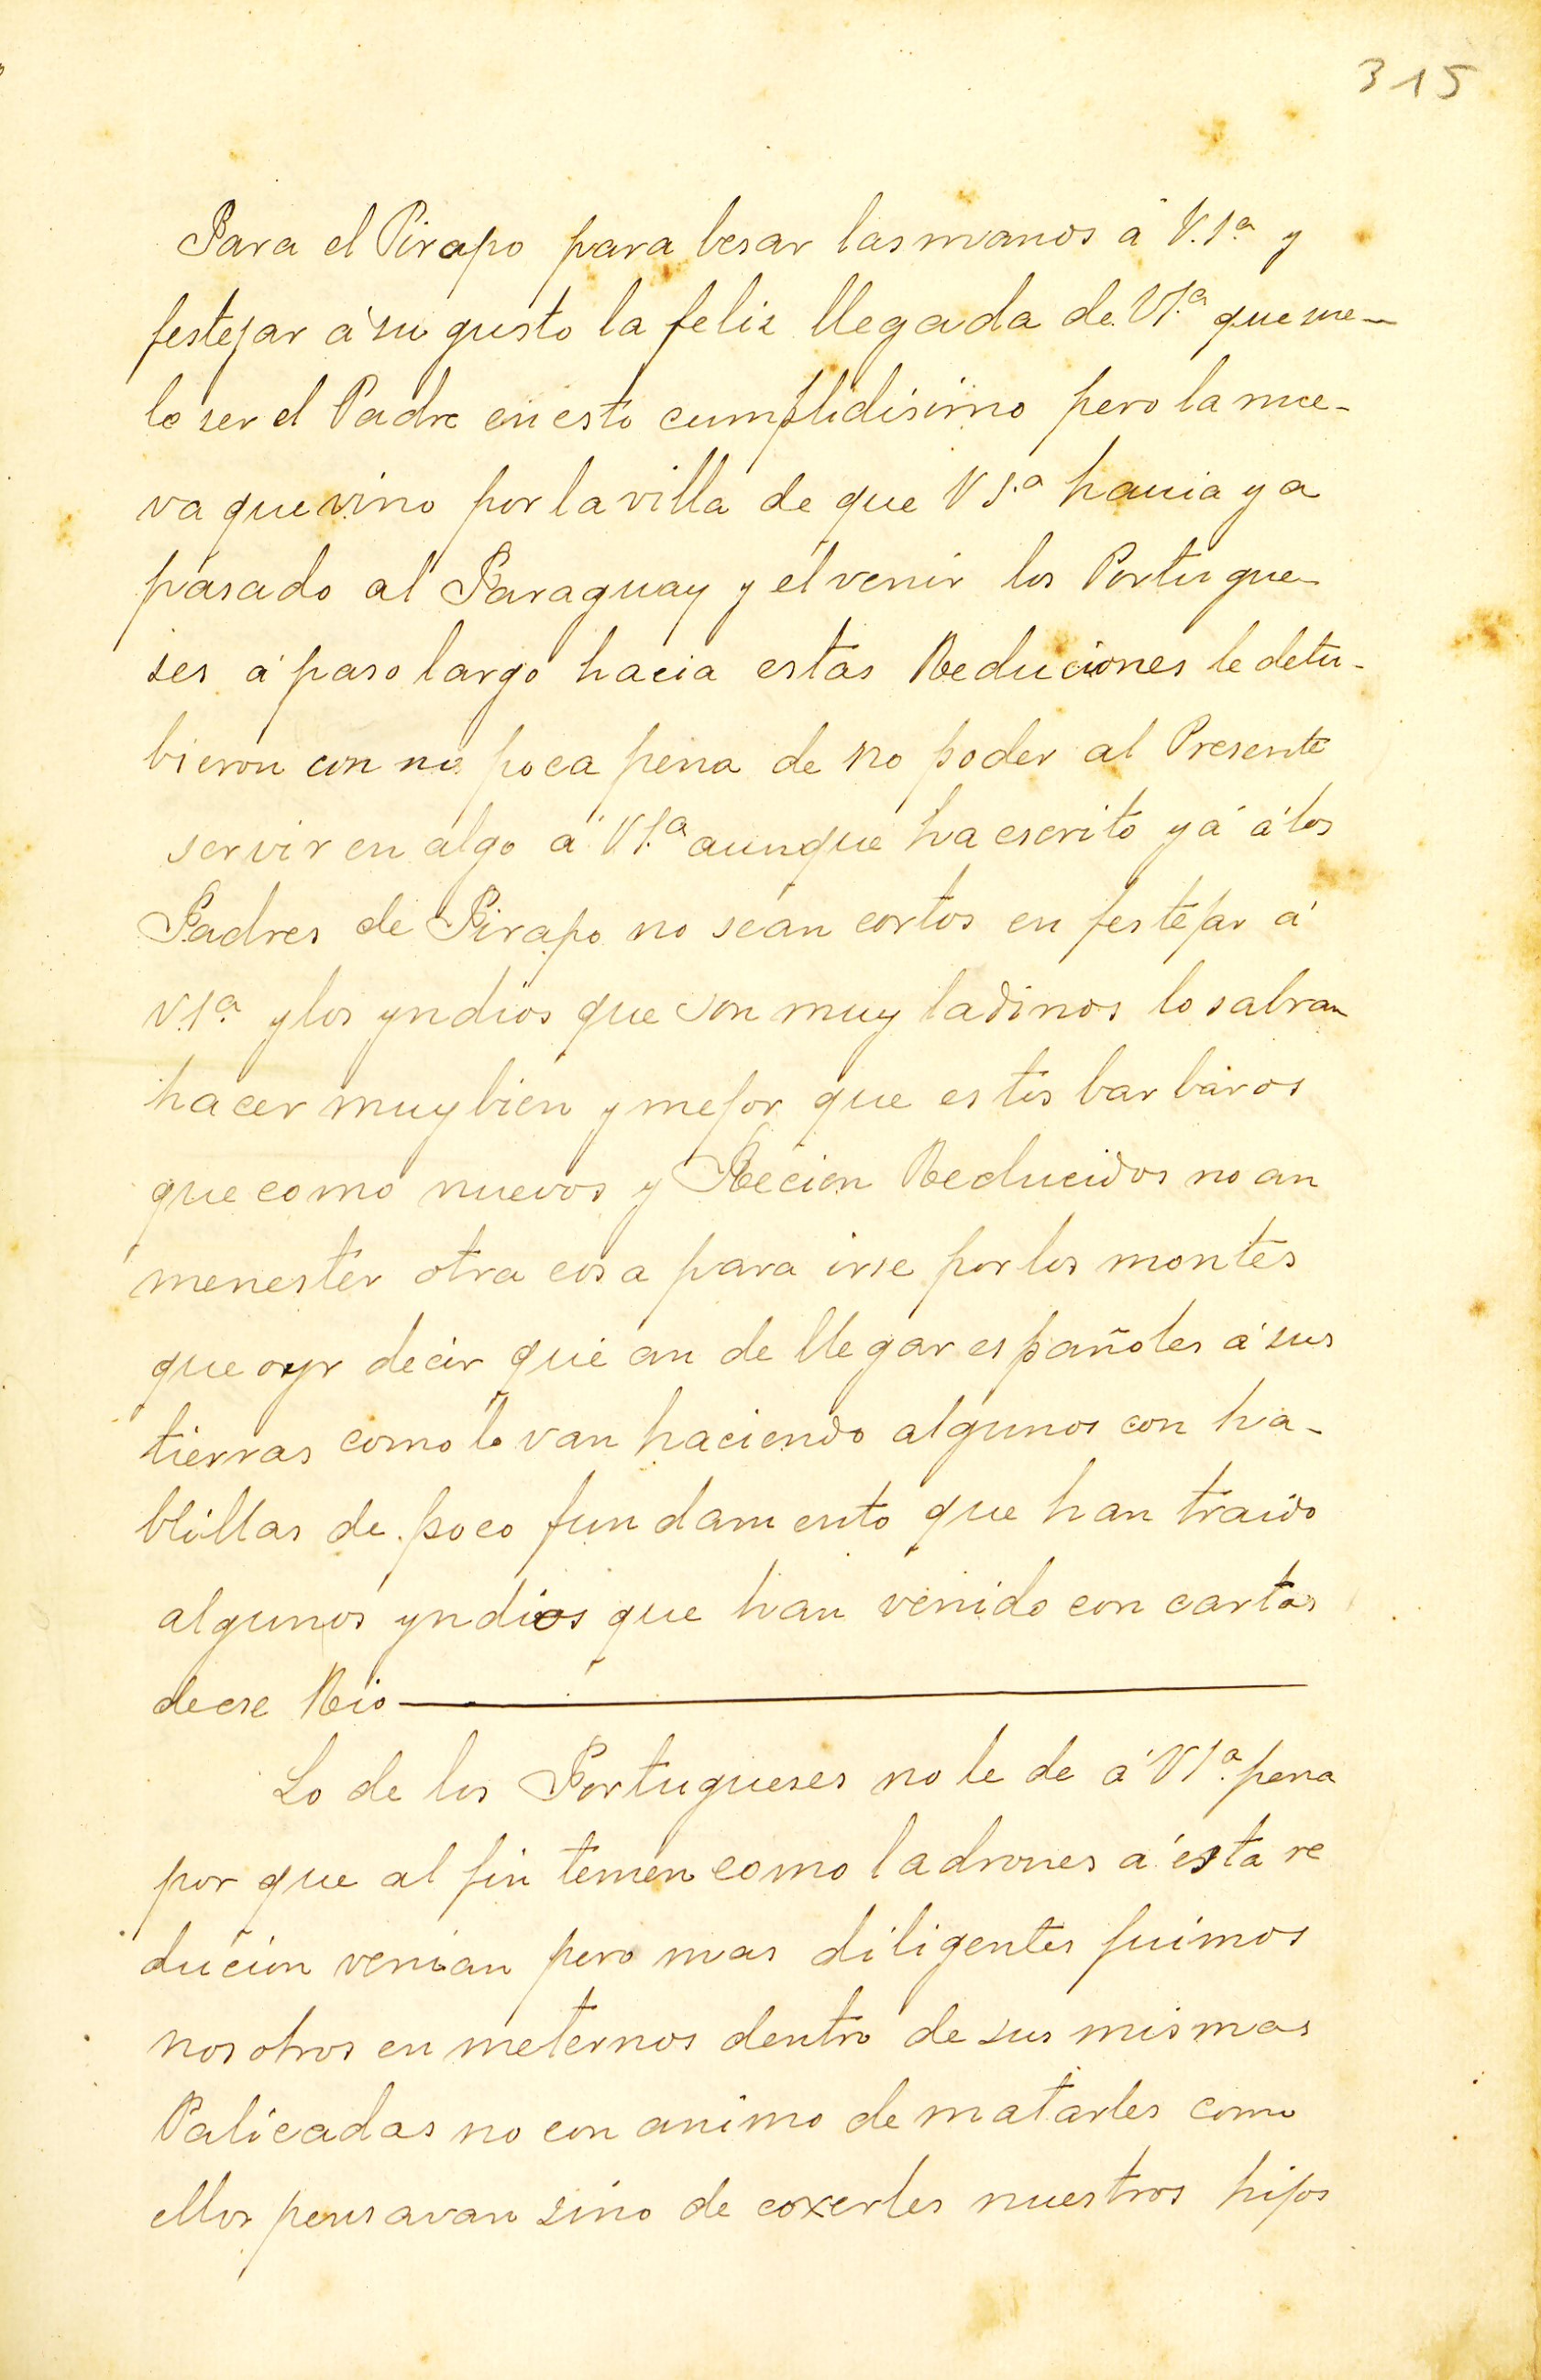 315
Para el Pirapo para besar las manos á V.Sª y
festejar á su gusto la feliz llegada de VSª que sue-
lo ser el Padre en esto cumplidisimo pero la nue-
va que vino por la villa de que VSª hauia ya
pasado al Paraguay y el venir los Portugue-
ses á paso largo hacia estas Reduciones le detu-
bieron con no poca pena de no poder al Presente
servir en algo á VSª aunque ha escrito yá á los
Padres de Pirapo no sean cortos en festejar á
VSª y los yndios que son muy ladinos lo sabran
hacer muy bien y mejor que estos barbaros
que como nuevos y Recien Reducidos no an
menester otra cosa para irse por los montes
que oyr decir que an de llegar españoles á sus
tierras como lo van haciendo algunos con ha-
blillas de poco fundamento que han traido
algunos yndios que han venido con cartas
de ese Rio
Lo de los Portugueses no le de á VSª pena
por que al fin temen como ladrones á esta re
ducion venian pero mas diligentes fuimos
nosotros en meternos dentro de sus mismas
Palicadas no con animo de matarles como
ellos pensavan sino de coxerles nuestros hijos